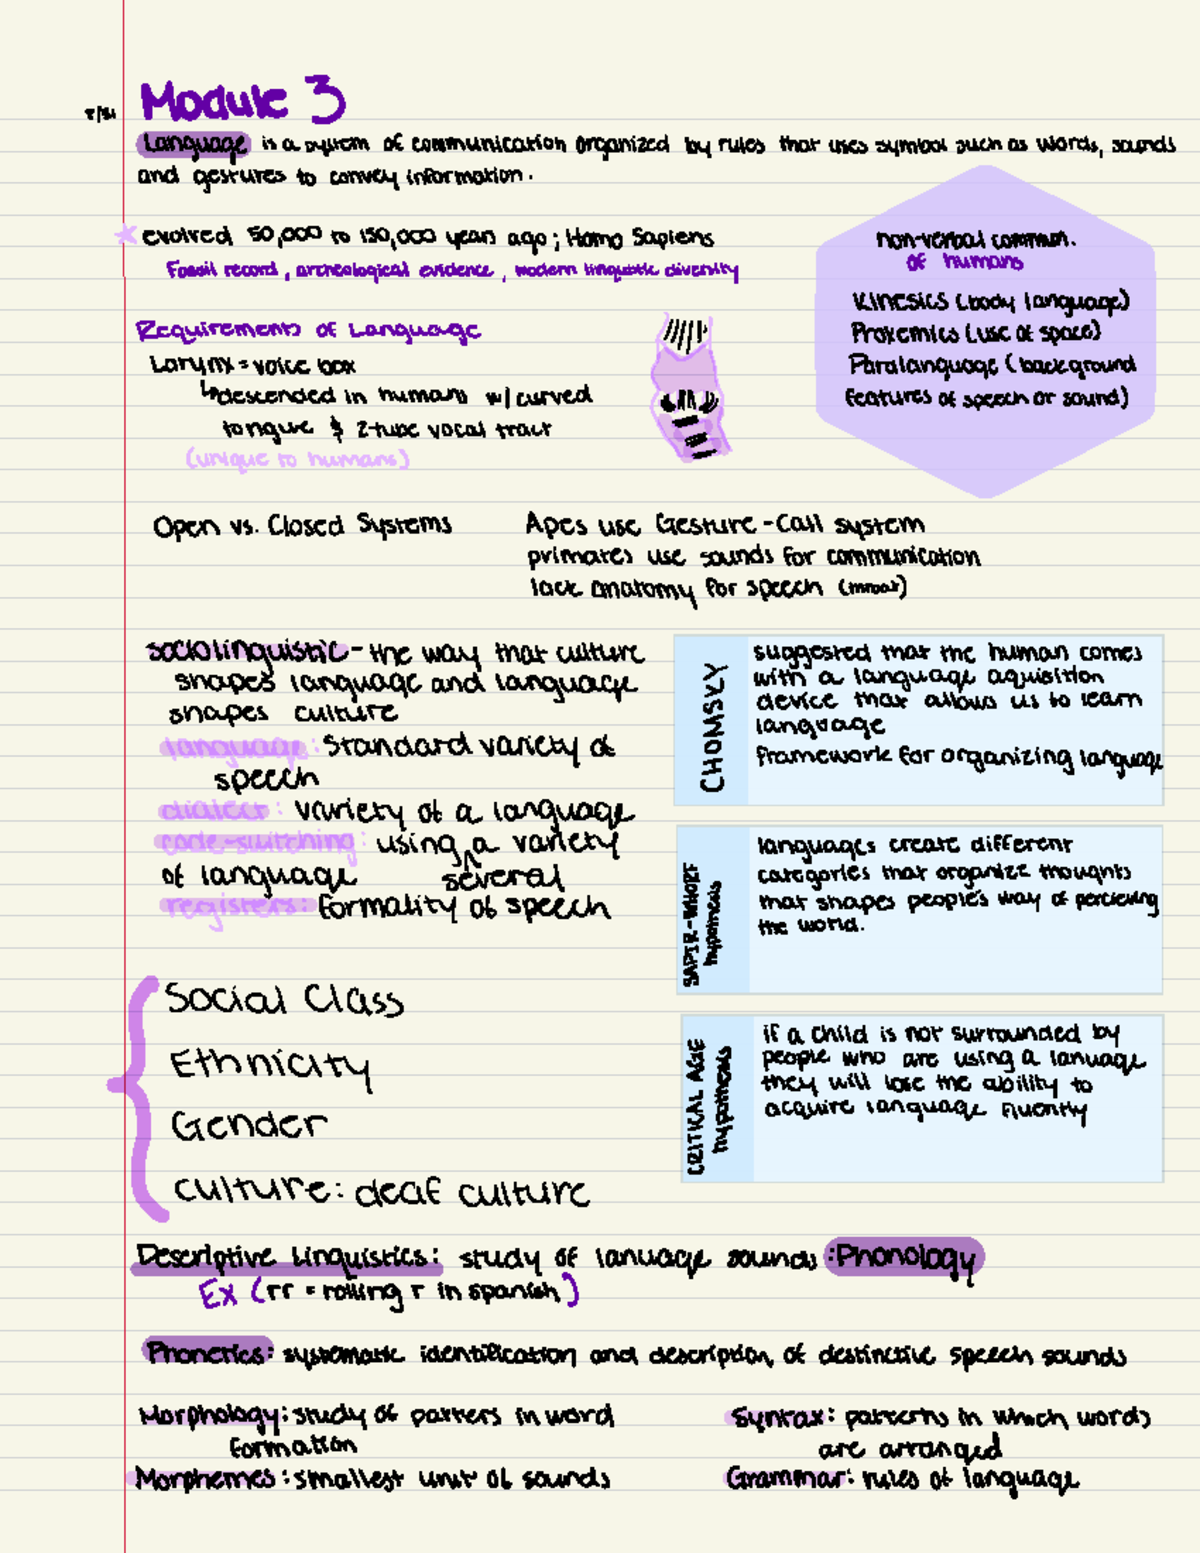 Module 3
Language is a system of communication organized by rules that uses symbol such as words, sounds
and gestures to convey information.
evolved 50,000 to 150,000 years ago; Homo Sapiens
Fossil record, archeological evidence, modern linguistic diversity
non-verbal commun.
of humans
Kinesics (body language)
Proxemics (use of space)
Paralanguage (background
features of speech or sound)
Requirements of Language
Larynx = voice box
↳descended in humans w/ curved
tongue & 2-tube vocal tract
(unique to humans)
Open vs. Closed Systems
Apes use Gesture-Call system
primates use sounds for communication
lack anatomy for speech (throat)
sociolinguistic - the way that culture
shapes language and language
shapes culture
language: Standard variety of
speech
dialect: variety of a language
code-switching: using a variety
of language several
registers: formality of speech
CHOMSKY
suggested that the human comes
with a language aquisition
device that allows us to learn
language
framework for organizing language
SAPIR-WHORF
hypothesis
languages create different
categories that organize thoughts
that shapes people's way of percieving
the world.
CRITICAL AGE
hypothesis
if a child is not surrounded by
people who are using a lanuage
they will lose the ability to
acquire language fluently
Social Class
Ethnicity
Gender
culture: deaf culture
Descriptive Linguistics: study of lanuage sounds :Phonology
Ex (rr = rolling r in spanish)
Phonetics: systematic identification and description of destinctive speech sounds
Morphology: study of patters in word
formation
Morphemes: smallest unit of sounds
Syntax: patterns in which words
are arranged
Grammar: rules of language